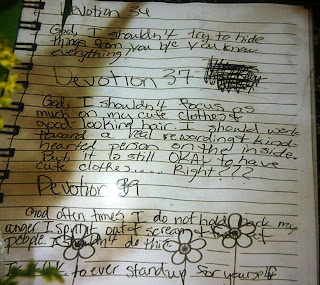 Devotion 34
God, I shouldn't try to hide
things from you b/c you know
everything!
Devotion 37
God, I shouldn't focus as
much on my cute clothes &
good-looking hair. I should work
toward a real rewording kind-
hearted person on the inside.
But it is still OKAY to have
cute clothes..... Right???
Devotion 39
God often times I do not hold back my
anger I spit it out of
people I shouldn't do this
to ever stand up for yourself